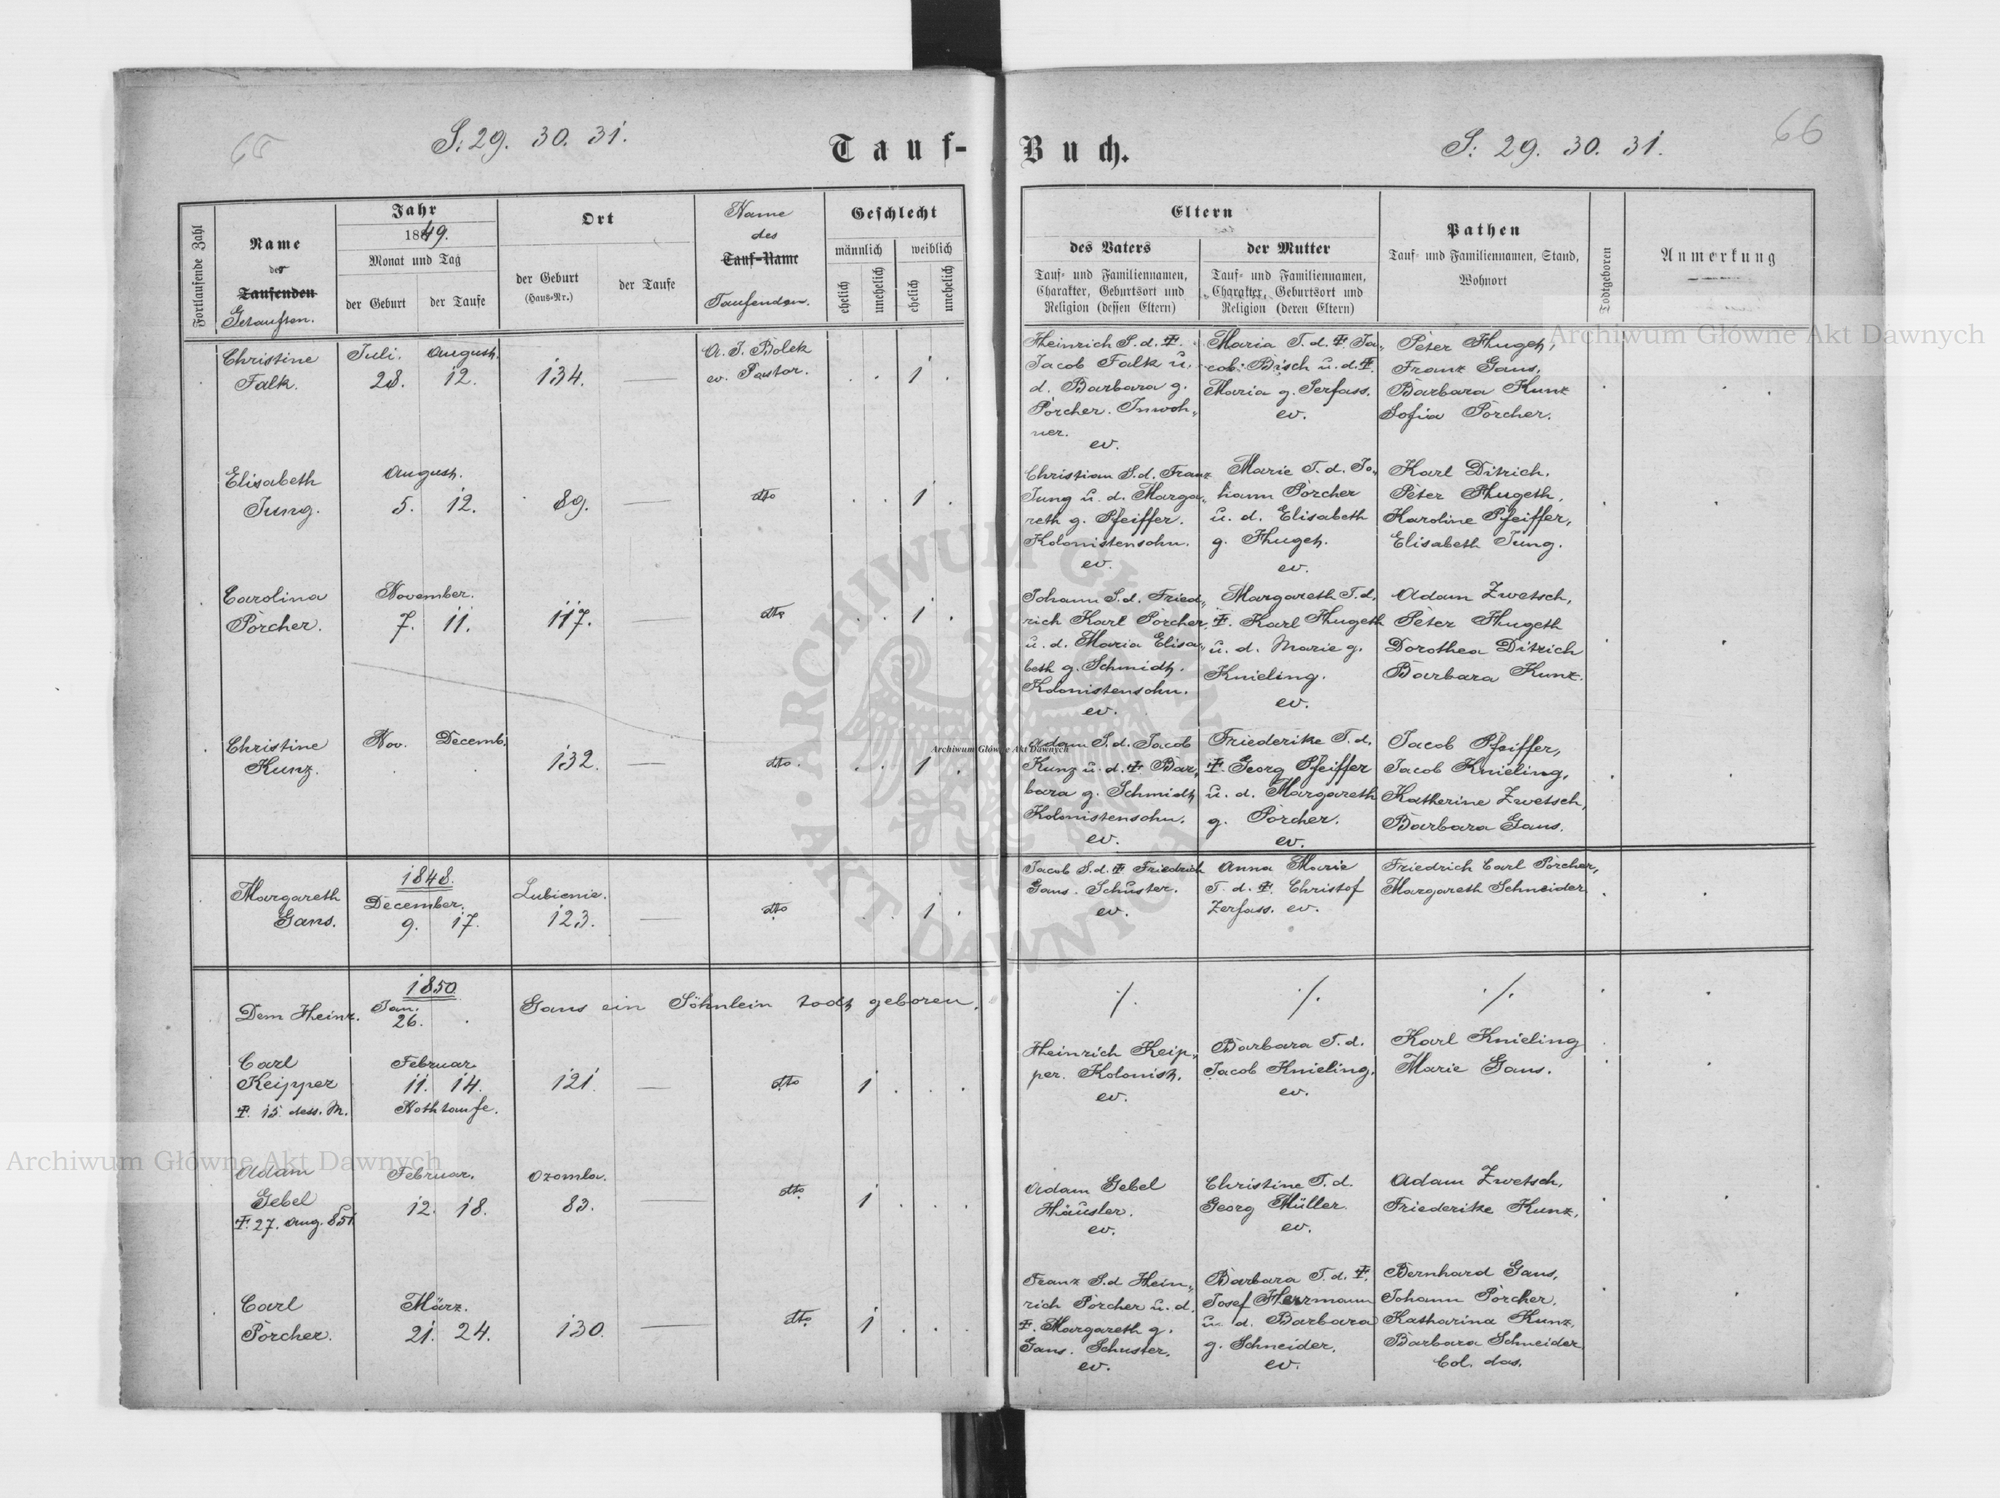 65
S: 29. 30. 31.
Tauf-
Buch.
S: 29. 30. 31.
66
Fortlaufende Zahl
Name
des
Taufenden
Getauften.
Jahr
1849.
Monat und Tag
der Geburt
der Taufe
Ort
der Geburt
(Haus-Nr.)
der Taufe
Name
des
Tauf-Name
Taufenden.
Geschlecht
männlich
weiblich
ehelich
unehelich
ehelich
unehelich
Eltern
des Vaters
Tauf- und Familiennamen,
Charakter, Geburtsort und
Religion (dessen Eltern)
der Mutter
Tauf- und Familiennamen,
Charakter, Geburtsort und
Religion (deren Eltern)
Pathen
Tauf- und Familiennamen, Stand,
Wohnort
Todtgeboren
Anmerkung
Christine
Falk.
Juli. August.
28. 12.
134. —
A. J. Bolek
ev. Pastor.
. . 1 .
Heinrich S. d. †.
Jacob Falk u.
d. Barbara g.
Porcher. Inwoh-
ner.
ev.
Maria T. d. †. Ja-
cob Bisch u. d. †.
Maria g. Serfass.
ev.
Peter Hugeth,
Franz Gans,
Barbara Kunz
Sofia Porcher.
Elisabeth
Jung.
August.
5. 12.
89. —
dto
. . 1 .
Christian S. d. Franz
Jung u. d. Marga-
reth g. Pfeiffer.
Kolonistensohn.
ev.
Marie T. d. Jo-
hann Porcher
u. d. Elisabeth
g. Hugeth.
ev.
Karl Ditrich.
Peter Hugeth,
Karoline Pfeiffer,
Elisabeth Jung.
Carolina
Porcher.
November.
7. 11.
117. —
dto
. . 1 .
Johann S. d. Fried-
rich Karl Porcher
u. d. Maria Elisa-
beth g. Schmidt.
Kolonistensohn.
ev.
Margareth T. d.
†. Karl Hugeth
u. d. Marie g.
Knieling.
ev.
Adam Zwetsch,
Peter Hugeth
Dorothea Ditrich
Barbara Kunz.
Christine
Kunz.
Nov. Decemb.
. .
132. —
dto.
. . 1 .
Adam S. d. Jacob
Kunz u. d. † Bar-
bara g. Schmidt,
Kolonistensohn.
ev.
Friederike T. d.
†. Georg Pfeiffer
u. d. Margareth
g. Porcher.
ev.
Jacob Pfeiffer,
Jacob Knieling,
Katherine Zwetsch,
Barbara Gans.
Margareth
Gans.
1848.
December.
9. 17.
Lubienie.
123. —
dto
. . 1 .
Jacob S. d. † Friedrich
Gans. Schuster.
ev.
Anna Marie
T. d. †. Christof
Zerfass. ev.
Friedrich Carl Porcher,
Margareth Schneider
Dem Heinr.
1850
Jan.
26. .
Gans ein Söhnlein todt geboren.
./.
./.
./.
Carl
Keipper
†. 15. dess. M.
Februar
11. 14.
Nothtaufe.
121. —
dto
1 . . .
Heinrich Keip-
per. Kolonist.
ev.
Barbara T. d.
Jacob Knieling.
ev.
Karl Knieling
Marie Gans.
Adam
Gebel
†. 27. Aug. 851
Februar.
12. 18.
Ozomla.
83. —
dto
1 . . .
Adam Gebel
Häusler.
ev.
Christine T. d.
Georg Müller.
ev.
Adam Zwetsch,
Friederike Kunz.
Carl
Porcher.
März.
21. 24.
130. —
dto
1 . . .
Franz S. d Hein-
rich Porcher u. d.
†. Margareth g.
Gans. Schuster.
ev.
Barbara T. d. †.
Josef Herrmann
u. d. Barbara
g. Schneider.
ev.
Bernhard Gans,
Johann Porcher,
Katharina Kunz,
Barbara Schneider
Col. das.
Archiwum Główne Akt Dawnych
Archiwum Główne Akt Dawnych
Archiwum Główne Akt Dawnych
ARCHIWUM GŁÓWNE AKT DAWNYCH